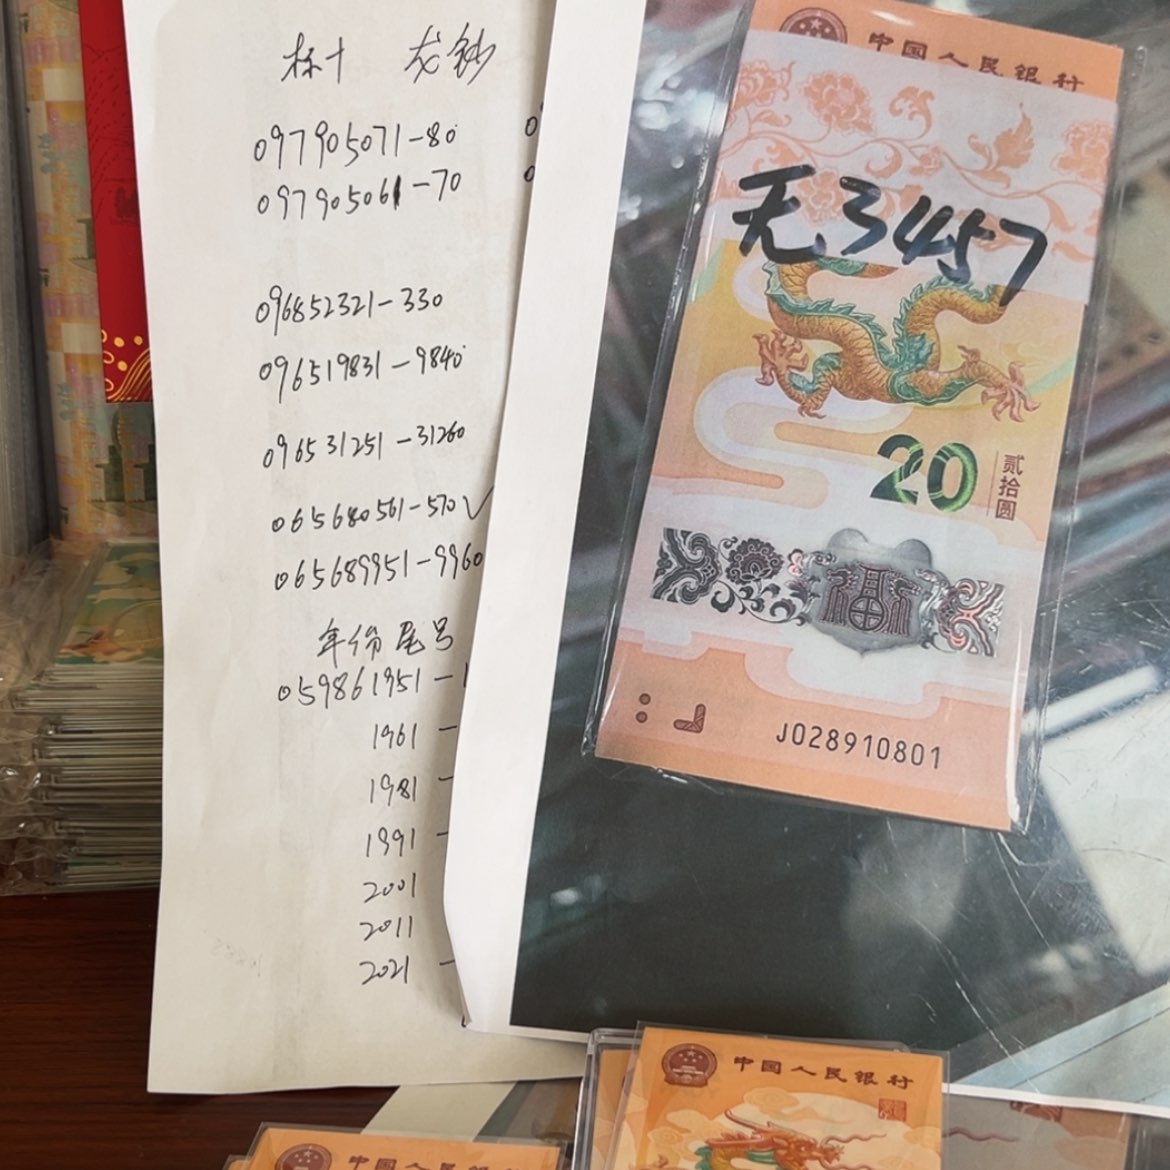 标十 龙钞
097905071-80
097905061-70
096852321-330
096519831-9840
096531251-31260
065680561-570✓
065689951-9960
年份尾号
059861951-
1961-
1981-
1991-
2001
2011
2021-
中国人民银行
无3457
20
贰拾圆
J028910801
中国人民银行
中国人民银行